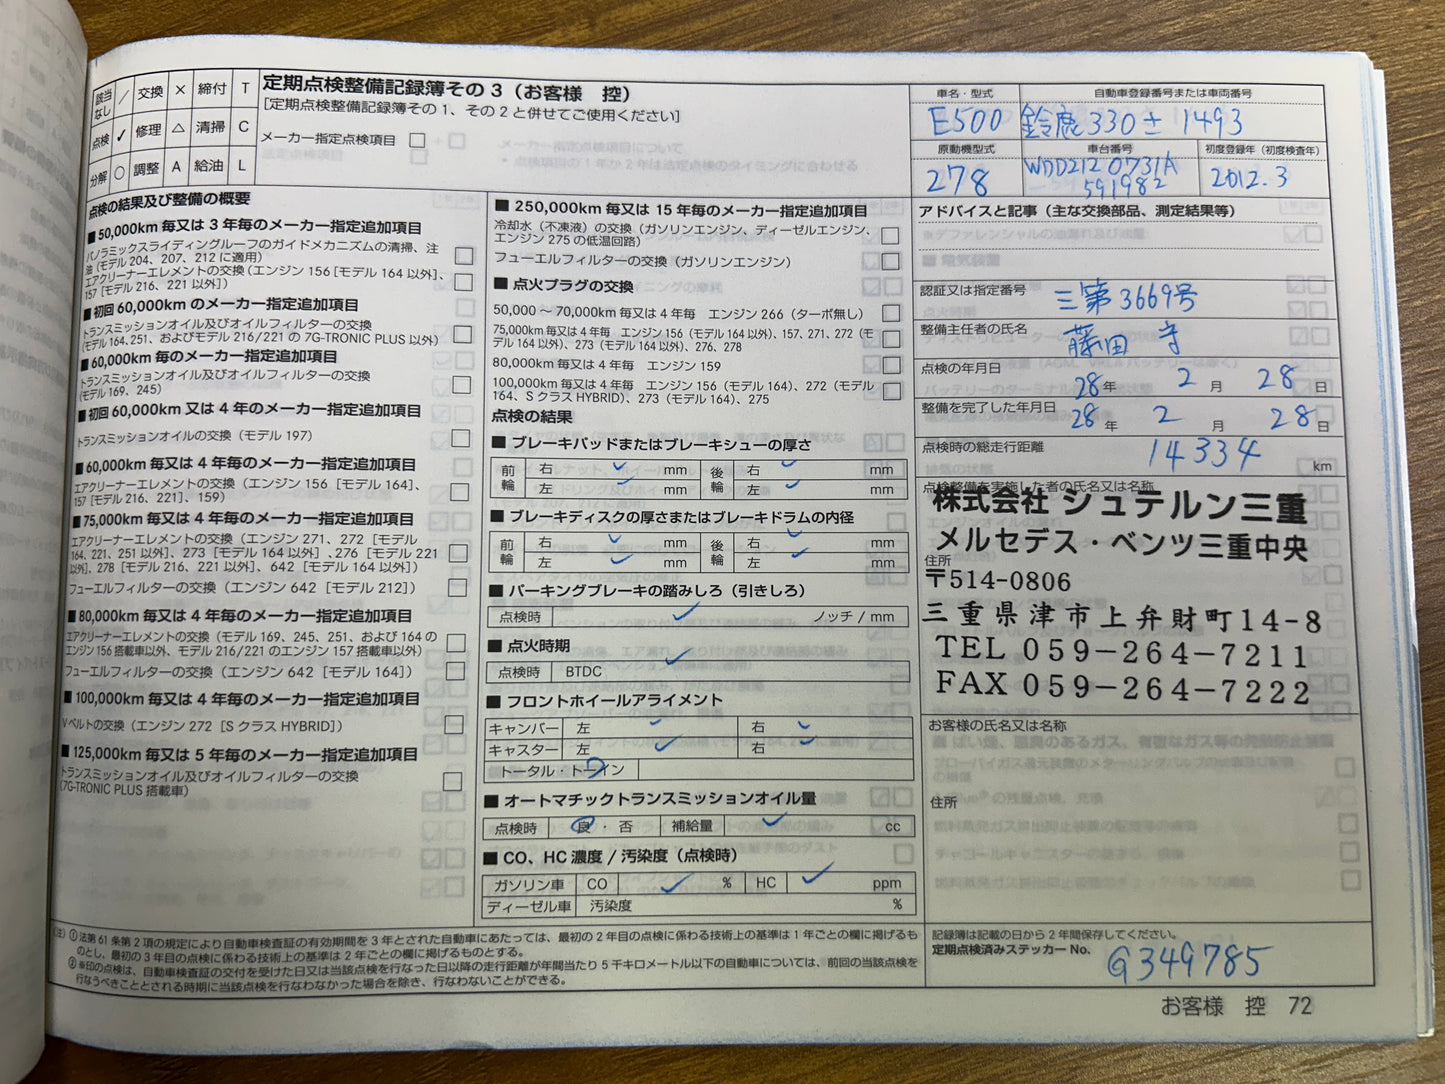 該当なし / 交換 × 締付 T
点検 ✓ 修理 △ 清掃 C
分解 ○ 調整 A 給油 L
定期点検整備記録簿その 3（お客様 控）
[定期点検整備記録簿その 1、その 2 と併せてご使用ください]
メーカー指定点検項目 □
点検の結果及び整備の概要
■ 50,000km 毎又は 3 年毎のメーカー指定追加項目
パノラミックスライディングルーフのガイドメカニズムの清掃、注
油（モデル 204、207、212 に適用）
エアクリーナーエレメントの交換（エンジン 156［モデル 164 以外］、
157［モデル 216、221 以外］）
■ 初回 60,000km のメーカー指定追加項目
トランスミッションオイル及びオイルフィルターの交換
（モデル 164,251、およびモデル 216/221 の 7G-TRONIC PLUS 以外）
■ 60,000km 毎のメーカー指定追加項目
トランスミッションオイル及びオイルフィルターの交換
（モデル 169、245）
■ 初回 60,000km 又は 4 年のメーカー指定追加項目
トランスミッションオイルの交換（モデル 197）
■ 60,000km 毎又は 4 年毎のメーカー指定追加項目
エアクリーナーエレメントの交換（エンジン 156［モデル 164］、
157［モデル 216、221］、159）
■ 75,000km 毎又は 4 年毎のメーカー指定追加項目
エアクリーナーエレメントの交換（エンジン 271、272［モデル
164、221、251 以外］、273［モデル 164 以外］、276［モデル 221
以外］、278［モデル 216、221 以外］、642［モデル 164 以外］）
フューエルフィルターの交換（エンジン 642［モデル 212］）
■ 80,000km 毎又は 4 年毎のメーカー指定追加項目
エアクリーナーエレメントの交換（モデル 169、245、251、および 164 の
エンジン 156 搭載車以外、モデル 216/221 のエンジン 157 搭載車以外）
フューエルフィルターの交換（エンジン 642［モデル 164］）
■ 100,000km 毎又は 4 年毎のメーカー指定追加項目
Vベルトの交換（エンジン 272［S クラス HYBRID］）
■ 125,000km 毎又は 5 年毎のメーカー指定追加項目
トランスミッションオイル及びオイルフィルターの交換
（7G-TRONIC PLUS 搭載車）
■ 250,000km 毎又は 15 年毎のメーカー指定追加項目
冷却水（不凍液）の交換（ガソリンエンジン、ディーゼルエンジン、
エンジン 275 の低温回路）
フューエルフィルターの交換（ガソリンエンジン）
■ 点火プラグの交換
50,000 ～ 70,000km 毎又は 4 年毎 エンジン 266（ターボ無し）
75,000km 毎又は 4 年毎 エンジン 156（モデル 164 以外）、157、271、272（モ
デル 164 以外）、273（モデル 164 以外）、276、278
80,000km 毎又は 4 年毎 エンジン 159
100,000km 毎又は 4 年毎 エンジン 156（モデル 164）、272（モデル
164、S クラス HYBRID）、273（モデル 164）、275
点検の結果
■ ブレーキパッドまたはブレーキシューの厚さ
前輪 右 ✓ mm 後輪 右 ✓ mm
左 ✓ mm 左 ✓ mm
■ ブレーキディスクの厚さまたはブレーキドラムの内径
前輪 右 ✓ mm 後輪 右 ✓ mm
左 ✓ mm 左 ✓ mm
■ パーキングブレーキの踏みしろ（引きしろ）
点検時 ✓ ノッチ / mm
■ 点火時期
点検時 BTDC ✓
■ フロントホイールアライメント
キャンバー 左 ✓ 右 ✓
キャスター 左 ✓ 右 ✓
トータル・トーイン
■ オートマチックトランスミッションオイル量
点検時 良 ・ 否 補給量 ✓ cc
■ CO、HC 濃度 / 汚染度（点検時）
ガソリン車 CO ✓ % HC ✓ ppm
ディーゼル車 汚染度 %
車名・型式 自動車登録番号または車両番号
E500 鈴鹿 330 ± 1493
原動機型式 車台番号 初度登録年（初度検査年）
278 WDD212 0731A 591982 2012.3
アドバイスと記事（主な交換部品、測定結果等）
認証又は指定番号 三第3669号
整備主任者の氏名 藤田 守
点検の年月日 28年 2 月 28日
整備を完了した年月日 28年 2 月 28日
点検時の総走行距離 14334 km
点検整備を実施した者の氏名又は名称
株式会社 シュテルン三重
メルセデス・ベンツ三重中央
住所
〒514-0806
三重県津市上弁財町14-8
TEL 059-264-7211
FAX 059-264-7222
お客様の氏名又は名称
住所
（注）① 法第 61 条第 2 項の規定により自動車検査証の有効期間を 3 年とされた自動車にあたっては、最初の 2 年目の点検に係わる技術上の基準は 1 年ごとの欄に掲げるも
のとし、最初の 3 年目の点検に係わる技術上の基準は 2 年ごとの欄に掲げるものとする。
② ※印の点検は、自動車検査証の交付を受けた日又は当該点検を行なった日以降の走行距離が年間当たり 5 千キロメートル以下の自動車については、前回の当該点検を
行なうべきこととされる時期に当該点検を行なわなかった場合を除き、行なわないことができる。
記録簿は記載の日から 2 年間保存してください。
定期点検済みステッカー No. G349785
お客様 控 72